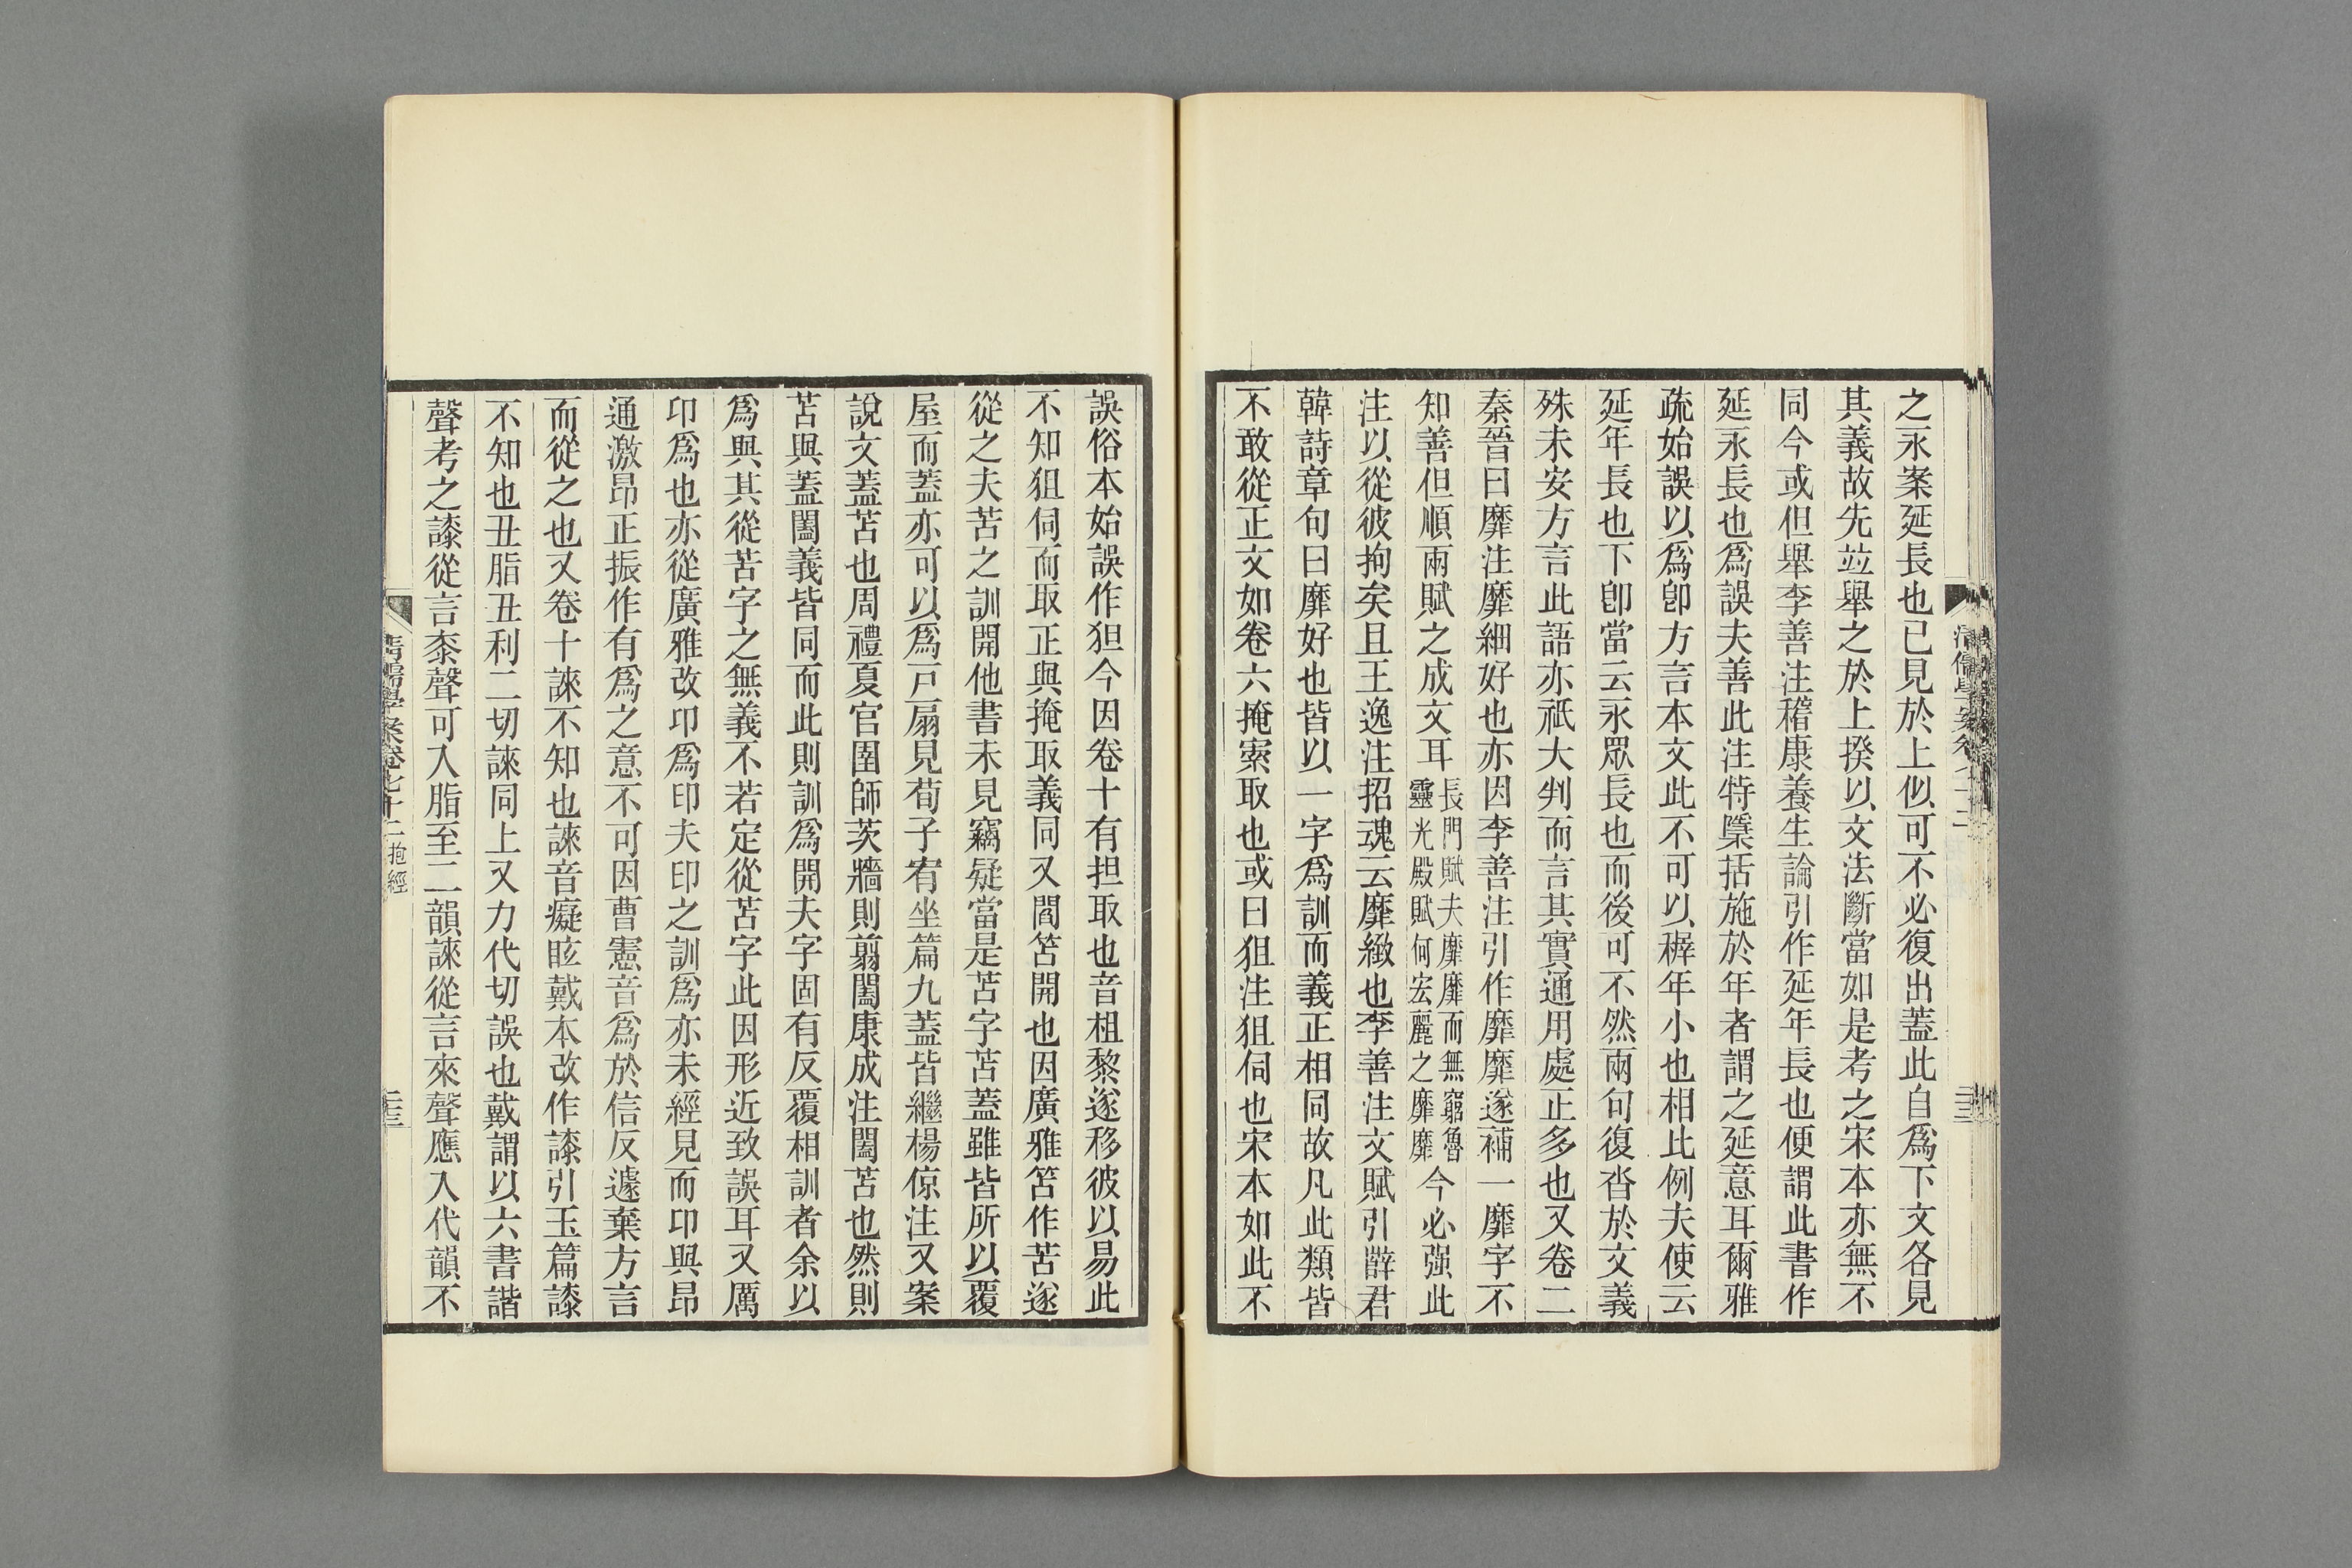 之永案延長也已見於上似可不必復出蓋此自爲下文各見
其義故先竝舉之於上揆以文法斷當如是考之宋本亦無不
同今或但舉李善注稽康養生論引作延年長也便謂此書作
延永長也爲誤夫善此注特檃括施於年者謂之延意耳爾雅
疏始誤以爲卽方言本文此不可以穉年小也相比例夫使云
延年長也下卽當云永眾長也而後可不然兩句復沓於文義
殊未安方言此語亦祇大判而言其實通用處正多也又卷二
秦晉曰靡注靡細好也亦因李善注引作靡靡遂補一靡字不
知善但順兩賦之成文耳長門賦夫靡靡而無窮魯靈光殿賦何宏麗之靡靡今必强此
注以從彼拘矣且王逸注招魂云靡緻也李善注文賦引薛君
韓詩章句曰靡好也皆以一字爲訓而義正相同故凡此類皆
不敢從正文如卷六掩索取也或曰狙注狙伺也宋本如此不
誤俗本始誤作狚今因卷十有担取也音柤黎遂移彼以易此
不知狙伺而取正與掩取義同又閻笘開也因廣雅笘作苫遂
從之夫苫之訓開他書未見竊疑當是苦字苫蓋雖皆所以覆
屋而蓋亦可以爲戸扇見荀子宥坐篇九蓋皆繼楊倞注又案
說文蓋苫也周禮夏官圉師茨牆則翦闔康成注闔苫也然則
苫與蓋闔義皆同而此則訓爲開夫字固有反覆相訓者余以
爲與其從苦字之無義不若定從苫字此因形近致誤耳又厲
卬爲也亦從廣雅改卬爲印夫印之訓爲亦未經見而卬與昂
通激昂正振作有爲之意不可因曹憲音爲於信反遽棄方言
而從之也又卷十誺不知也誺音癡眩戴本改作䜡引玉篇䜡
不知也丑脂丑利二切誺同上又力代切誤也戴謂以六書諧
聲考之䜡從言桼聲可入脂至二韻誺從言來聲應入代韻不
清儒學案卷七十二 抱經
二十三